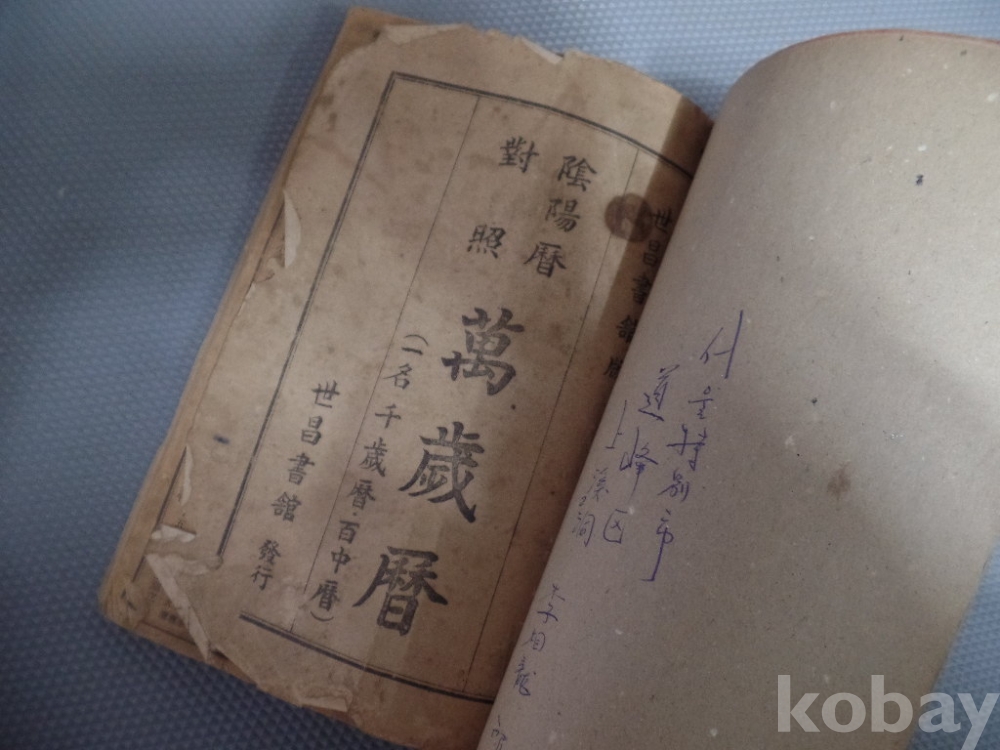 世昌書館
陰陽曆
對照
萬歲曆
(一名千歲曆·百中曆)
世昌書館 發行
서울特別市
道峰区
上溪洞
kobay